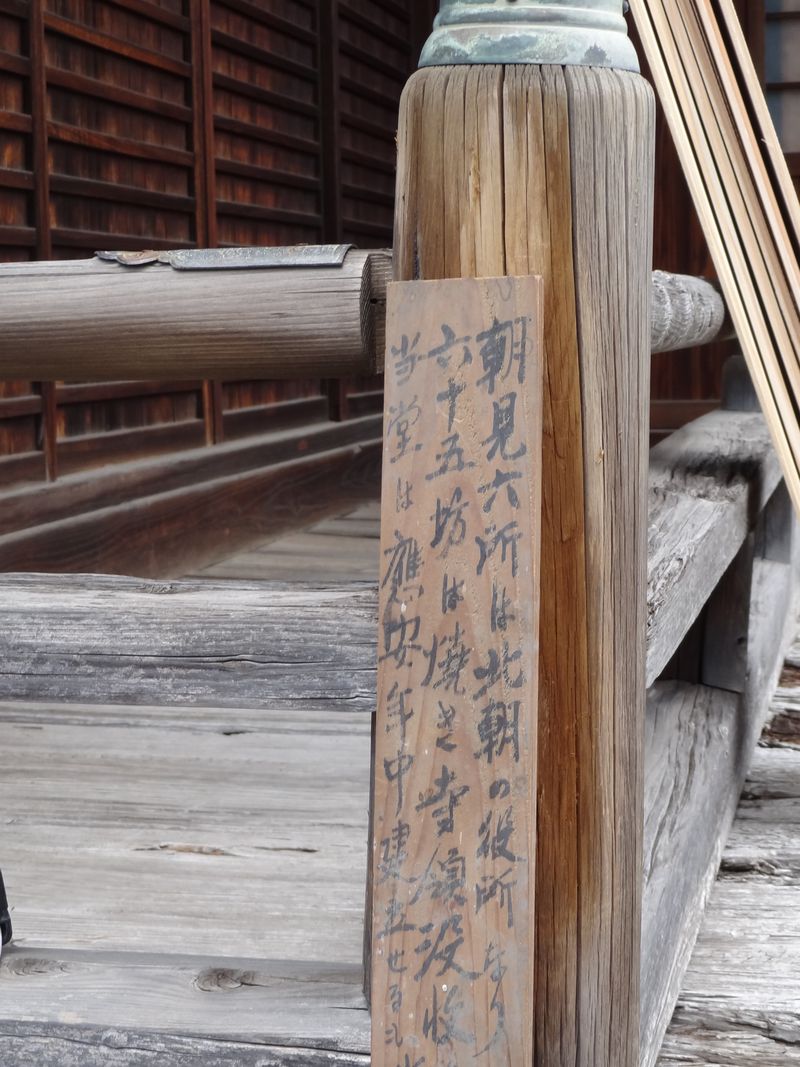 朝見六所は北朝の役所なり
六十五坊は焼き寺領没収
当堂は應安年中建立せる